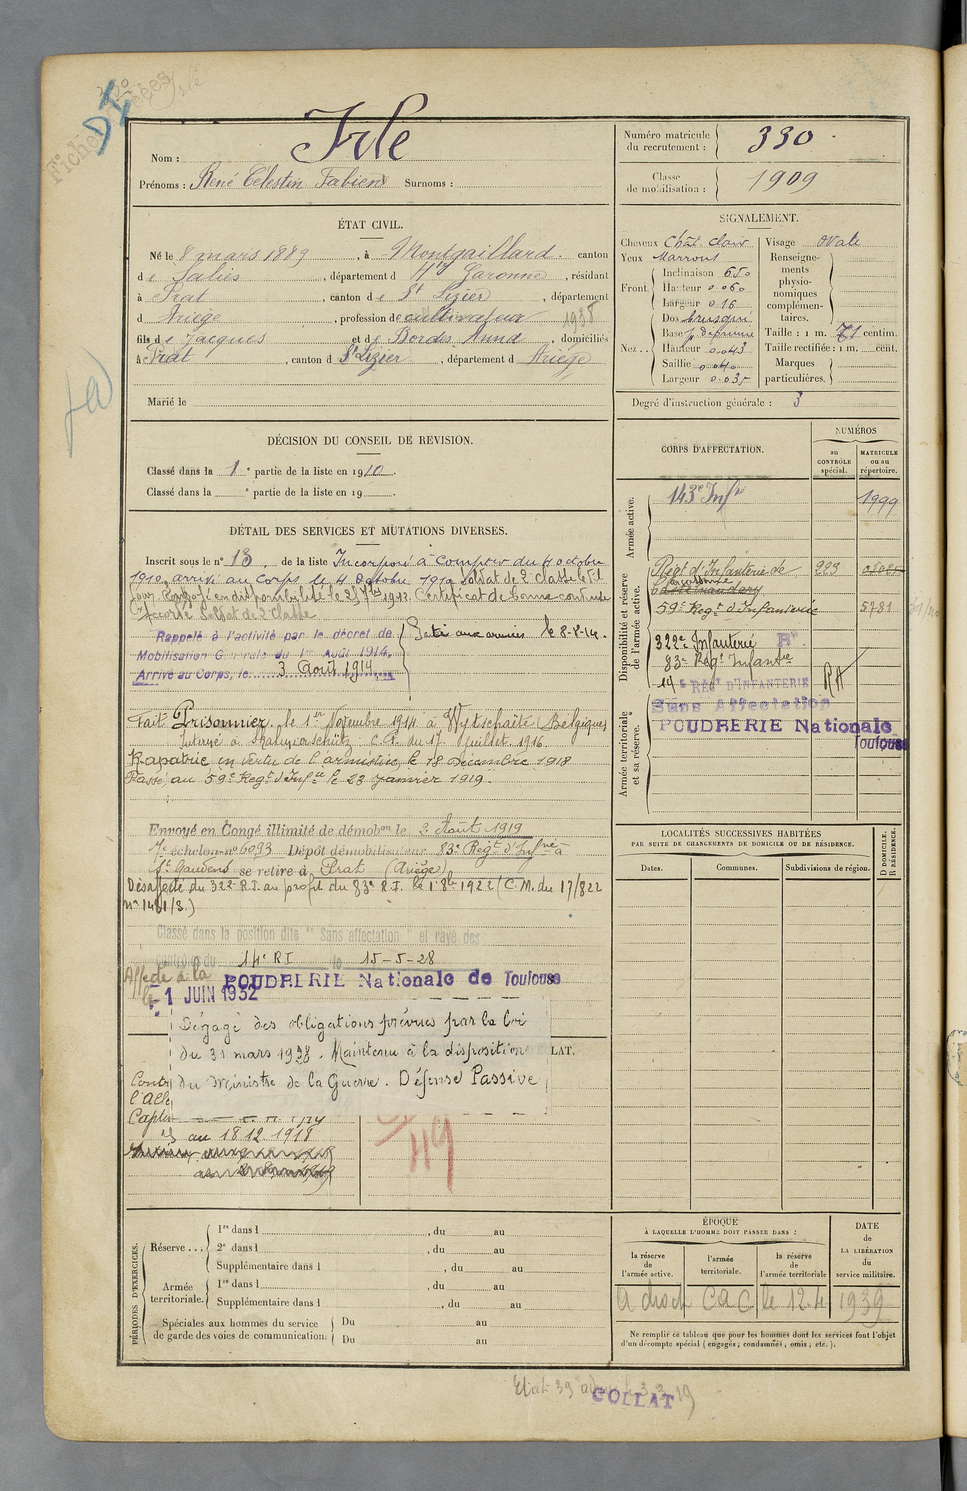 Fiches
DI
Nom : Isle
Prénoms : René Célestin Fabien Surnoms :
Numéro matricule du recrutement : 330
Classe de mobilisation : 1909
ÉTAT CIVIL.
Né le 8 mars 1889, à Montgaillard canton
de Salies, département d Hte Garonne, résidant
à Prat, canton de St Lizier, département
d Ariège, profession de cultivateur 1938
fils de Jacques et de Bordes Anna, domiciliés
à Prat, canton d St Lizier, département d Ariège
Marié le
SIGNALEMENT.
Cheveux Chât. clair
Yeux Marrons
Front. Inclinaison
Hauteur
Largeur
Nez.. Dos busqué
Base
Hauteur
Saillie
Largeur
Visage ovale
Renseignements physionomiques complémentaires.
Taille : 1 m. 71 centim.
Taille rectifiée : 1 m. cent.
Marques particulières.
Degré d'instruction générale : 3
DÉCISION DU CONSEIL DE REVISION.
Classé dans la 1e partie de la liste en 1910.
Classé dans la e partie de la liste en 19 .
DÉTAIL DES SERVICES ET MUTATIONS DIVERSES.
Inscrit sous le n° 18 de la liste Incorporé à compter du 4 octobre
1910, arrivé au corps le 4 octobre 1910 Soldat de 2e classe le dit
jour. Envoyé en disponibilité le 25 7bre 1912. Certificat de bonne conduite
accordé Soldat de 2e classe
Rappelé à l'activité par le décret de
Mobilisation Générale du 1er Août 1914.
Arrivé au Corps, le 3 Août 1914
Parti aux armées le 8-8-14.
Fait Prisonnier le 1er Novembre 1914 à Wytschaete (Belgique)
Interné à C.R. du 17 juillet 1916
Rapatrié en vertu de l'armistice, le 18 Décembre 1918
Passé au 59e Regt d'Infie le 23 janvier 1919.
Envoyé en Congé illimité de démobon le 2 Août 1919
échelon n° 6093 Dépôt démobilisateur 83e Regt d'Infrie à
St Gaudens se retire à Prat (Ariège)
Désaffecté du 322e R.I. au profit du 83e R.I. le 1 8bre 1922 (C.M. du 17/8 22
n° 1481/3.)
Classé dans la position dite "Sans affectation" et rayé des
contrôles du 14e RI le 15-5-28
Affecté à la POUDRERIE Nationale de Toulouse
le 1 JUIN 1932
Dégagé des obligations prévues par la loi
du 31 mars 1928. Maintenu à la disposition
du Ministre de la Guerre. Défense Passive
LAT.
Contr
l'All
Captiv
au 18.12.1918
49
CORPS D'AFFECTATION.
NUMÉROS
au CONTRÔLE spécial.
MATRICULE ou au répertoire.
Armée active.
143e Infie 1999
Disponibilité et réserve de l'armée active.
Régt d'Infanterie de 223
59e Regt d'Infanterie 5781
322e Infanterie
83e Régt Infantie
14e RÉGt D'INFANTERIE
RA
Armée territoriale et sa réserve.
Sans Affectation
POUDRERIE Nationale
Toulouse
LOCALITÉS SUCCESSIVES HABITÉES
PAR SUITE DE CHANGEMENTS DE DOMICILE OU DE RÉSIDENCE.
Dates. Communes. Subdivisions de région. D DOMICILE. R RÉSIDENCE.
PÉRIODES D'EXERCICES.
Réserve ... 1re dans l , du au
2e dans l , du au
Supplémentaire dans l , du au
Armée territoriale. 1re dans l , du au
Supplémentaire dans l , du au
Spéciales aux hommes du service de garde des voies de communication.
Du au
Du au
ÉPOQUE
À LAQUELLE L'HOMME DOIT PASSER DANS :
la réserve de l'armée active.
l'armée territoriale.
la réserve de l'armée territoriale
DATE de LA LIBÉRATION du service militaire.
a droit CaC le 12.4 1939
Ne remplir ce tableau que pour les hommes dont les services font l'objet
d'un décompte spécial (engagés, condamnés, omis, etc.).
COLLAT